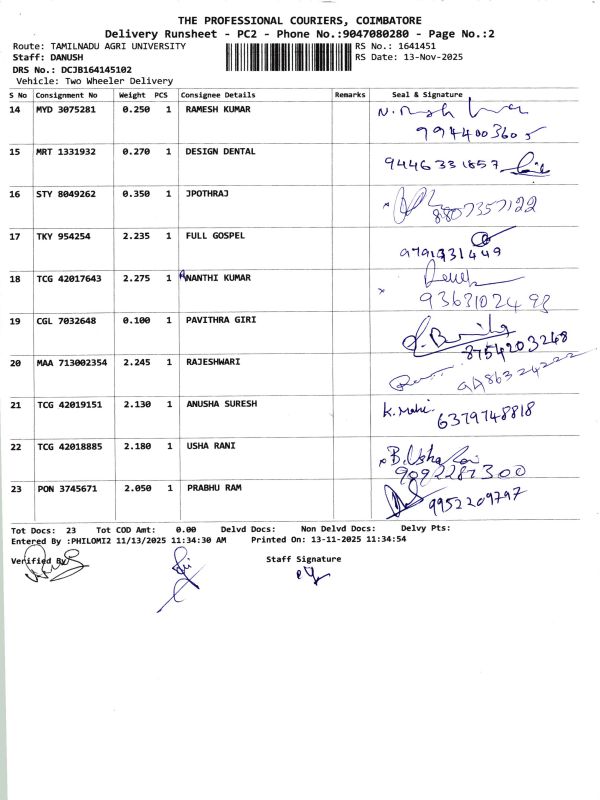 THE PROFESSIONAL COURIERS, COIMBATORE
Delivery Runsheet - PC2 - Phone No.:9047080280 - Page No.:2
Route: TAMILNADU AGRI UNIVERSITY RS No.: 1641451
Staff: DANUSH RS Date: 13-Nov-2025
DRS No.: DCJB164145102
Vehicle: Two Wheeler Delivery
S No Consignment No Weight PCS Consignee Details Remarks Seal & Signature
14 MYD 3075281 0.250 1 RAMESH KUMAR
9944003605
15 MRT 1331932 0.270 1 DESIGN DENTAL
9446331857
16 STY 8049262 0.350 1 JPOTHRAJ
8807357122
17 TKY 954254 2.235 1 FULL GOSPEL
9791331449
18 TCG 42017643 2.275 1 ANANTHI KUMAR
9363102498
19 CGL 7032648 0.100 1 PAVITHRA GIRI
8754203268
20 MAA 713002354 2.245 1 RAJESHWARI
21 TCG 42019151 2.130 1 ANUSHA SURESH K. Mahi
6379748818
22 TCG 42018885 2.180 1 USHA RANI B. Usha Rani
9092287300
23 PON 3745671 2.050 1 PRABHU RAM 9952209797
Tot Docs: 23 Tot COD Amt: 0.00 Delvd Docs: Non Delvd Docs: Delvy Pts:
Entered By :PHILOMI2 11/13/2025 11:34:30 AM Printed On: 13-11-2025 11:34:54
Verified By Staff Signature